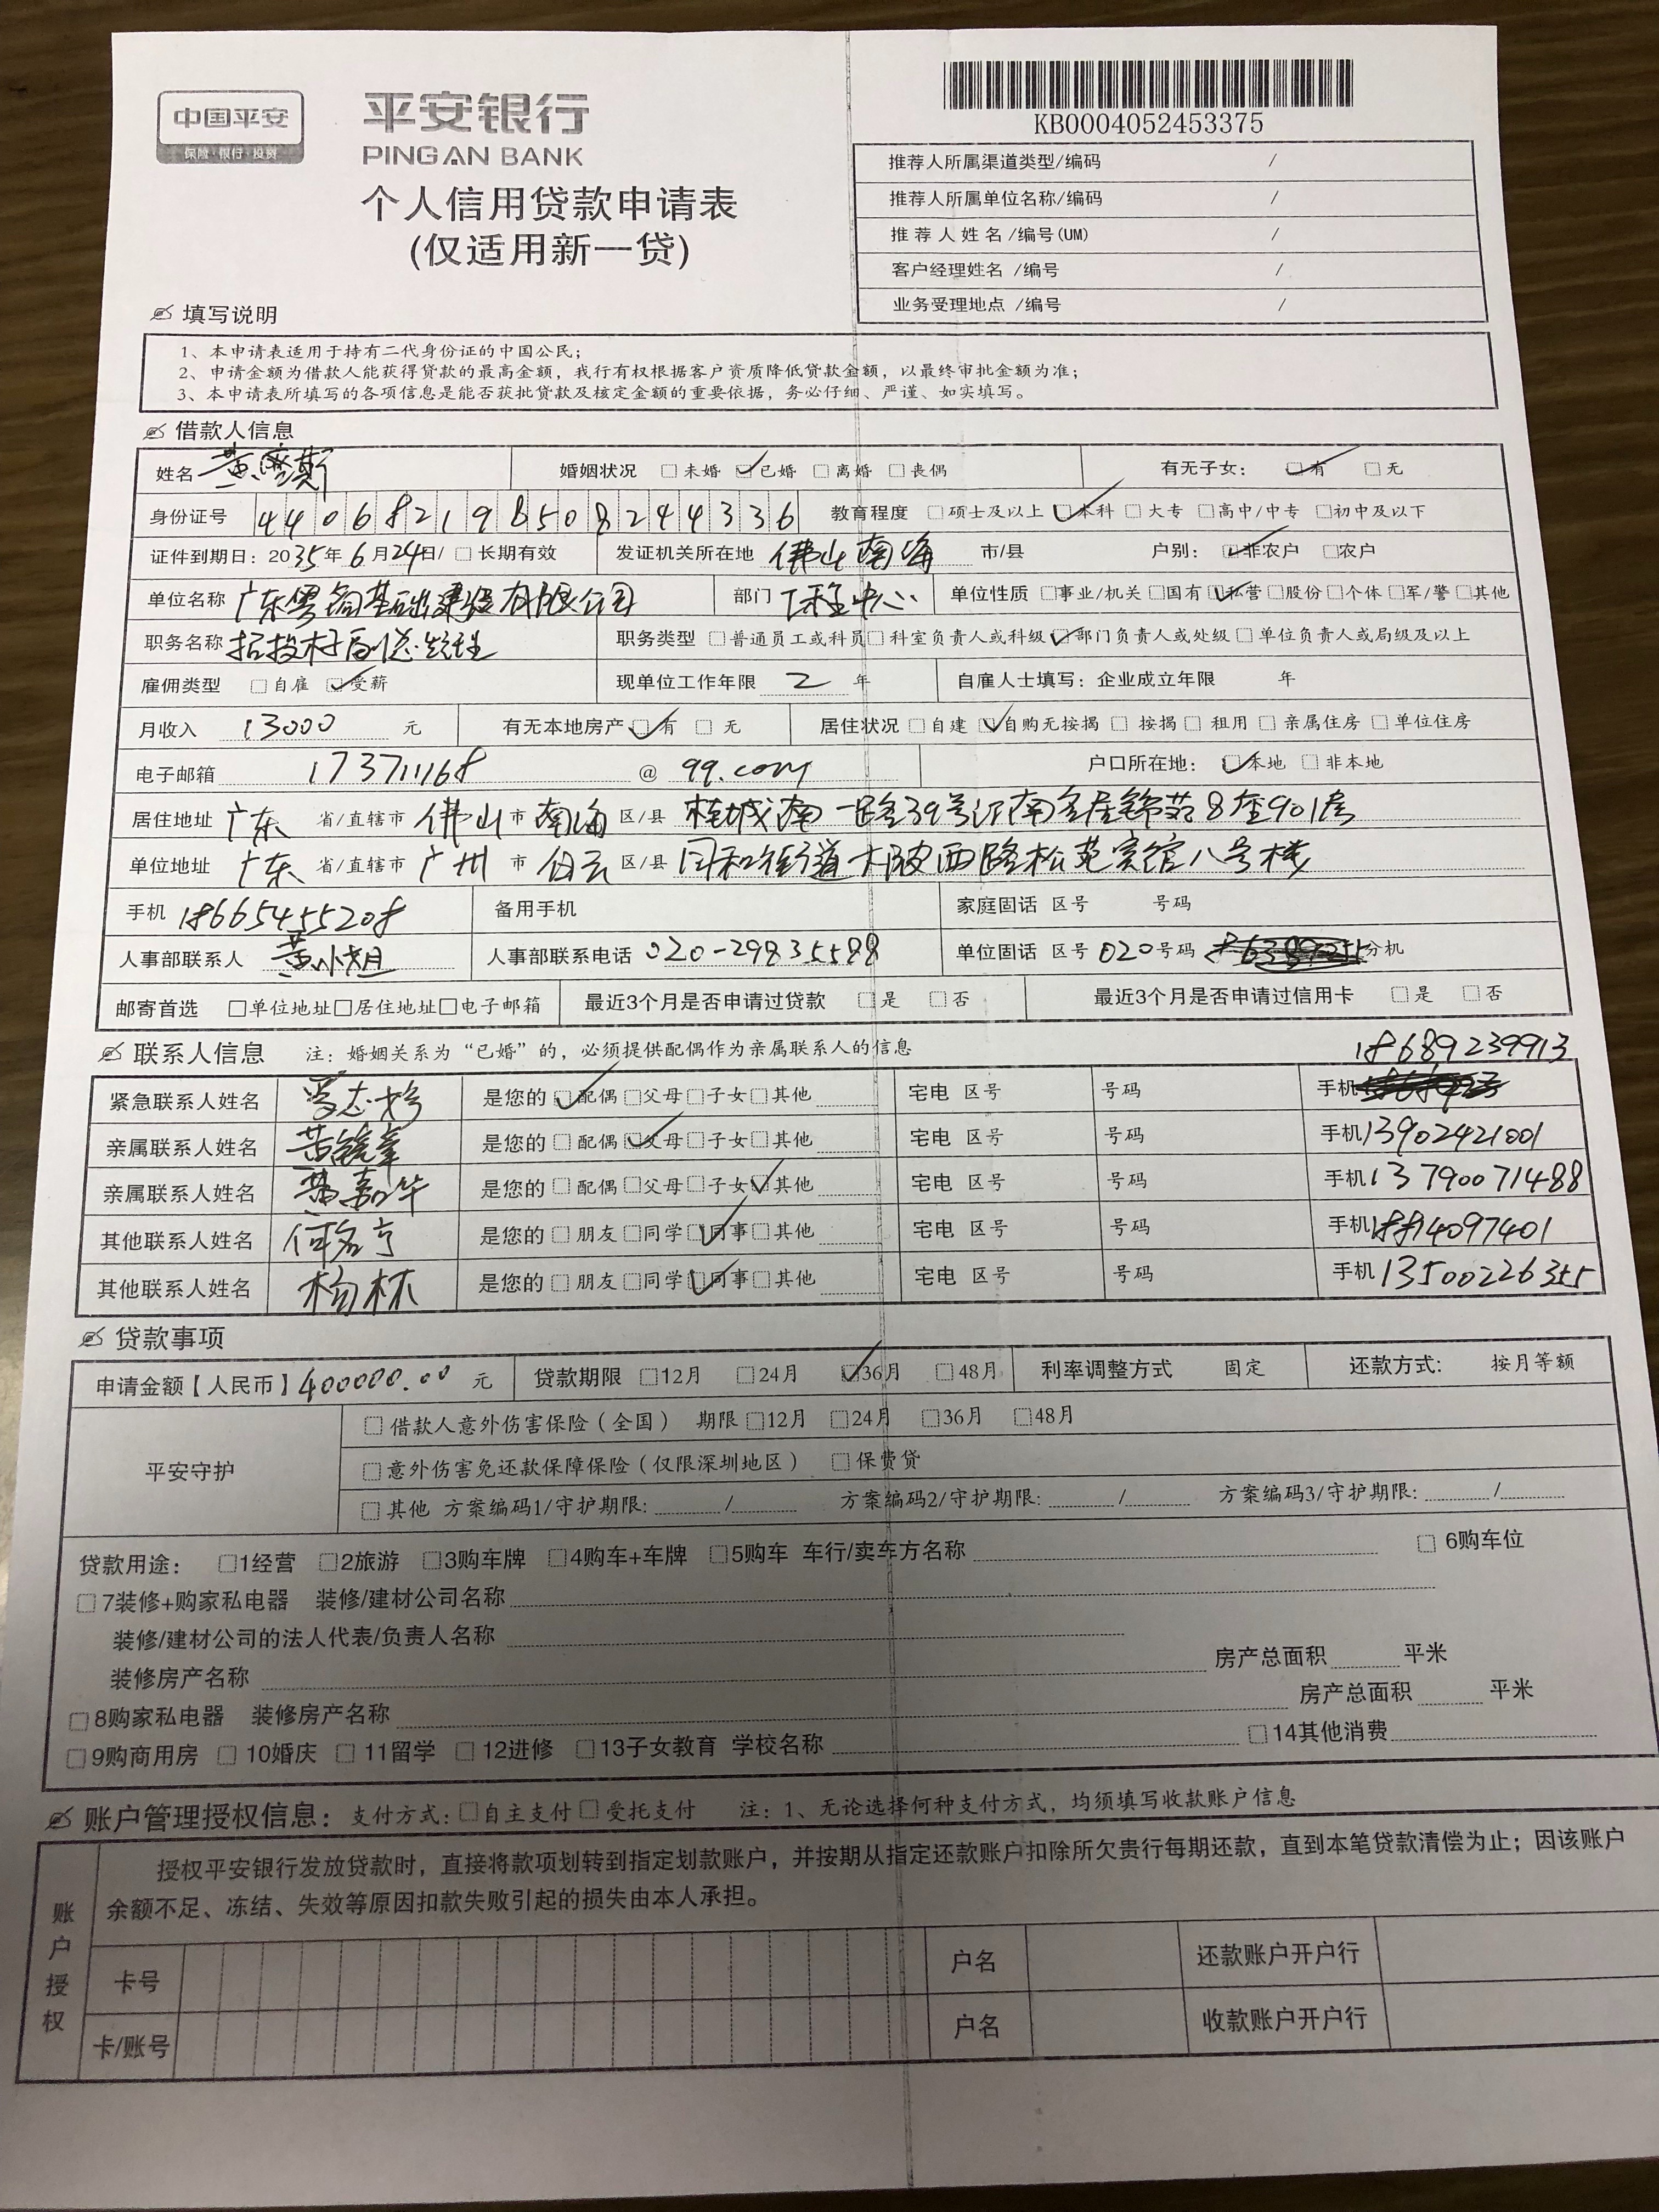 中国平安
保险·银行·投资
平安银行
PINGAN BANK
个人信用贷款申请表
(仅适用新一贷)
KB0004052453375
推荐人所属渠道类型/编码 /
推荐人所属单位名称/编码 /
推荐人姓名/编号(UM) /
客户经理姓名/编号 /
业务受理地点/编号 /
填写说明
1、本申请表适用于持有二代身份证的中国公民；
2、申请金额为借款人能获得贷款的最高金额，我行有权根据客户资质降低贷款金额，以最终审批金额为准；
3、本申请表所填写的各项信息是能否获批贷款及核定金额的重要依据，务必仔细、严谨、如实填写。
借款人信息
姓名 黄 斯 婚姻状况 □未婚 ☑已婚 □离婚 □丧偶 有无子女： ☑有 □无
身份证号 440682198508244336 教育程度 □硕士及以上 ☑本科 □大专 □高中/中专 □初中及以下
证件到期日：2035年6月24日/ □长期有效 发证机关所在地 佛山南海 市/县 户别： ☑非农户 □农户
单位名称 广东粤 基础建设有限公司 部门 工程中心 单位性质 □事业/机关 □国有 ☑私营 □股份 □个体 □军/警 □其他
职务名称 招投标副总经理 职务类型 □普通员工或科员 □科室负责人或科级 ☑部门负责人或处级 □单位负责人或局级及以上
雇佣类型 □自雇 ☑受薪 现单位工作年限 2 年 自雇人士填写：企业成立年限 年
月收入 13000 元 有无本地房产 ☑有 □无 居住状况 □自建 ☑自购无按揭 □按揭 □租用 □亲属住房 □单位住房
电子邮箱 173711168 @ qq.com 户口所在地： ☑本地 □非本地
居住地址 广东 省/直辖市 佛山 市 南海 区/县 桂城南一路39号江南名居锦苑8座901房
单位地址 广东 省/直辖市 广州 市 白云 区/县 同和街道大陂西路松苑宾馆八号楼
手机 18665455208 备用手机 家庭固话 区号 号码
人事部联系人 黄 人事部联系电话 020-29835588 单位固话 区号 020 号码 分机
邮寄首选 □单位地址 □居住地址 □电子邮箱 最近3个月是否申请过贷款 □是 □否 最近3个月是否申请过信用卡 □是 □否
联系人信息 注：婚姻关系为“已婚”的，必须提供配偶作为亲属联系人的信息 18689239913
紧急联系人姓名 是您的 ☑配偶 □父母 □子女 □其他 宅电 区号 号码 手机
亲属联系人姓名 黄 是您的 □配偶 ☑父母 □子女 □其他 宅电 区号 号码 手机13902421001
亲属联系人姓名 黄嘉华 是您的 □配偶 □父母 □子女 ☑其他 宅电 区号 号码 手机13790071488
其他联系人姓名 何名亨 是您的 □朋友 □同学 ☑同事 □其他 宅电 区号 号码 手机18814097401
其他联系人姓名 杨林 是您的 □朋友 □同学 ☑同事 □其他 宅电 区号 号码 手机13500226355
贷款事项
申请金额【人民币】400000.00 元 贷款期限 □12月 □24月 ☑36月 □48月 利率调整方式 固定 还款方式: 按月等额
平安守护
□借款人意外伤害保险（全国） 期限 □12月 □24月 □36月 □48月
□意外伤害免还款保障保险（仅限深圳地区） □保费贷
□其他 方案编码1/守护期限: / 方案编码2/守护期限: / 方案编码3/守护期限: /
贷款用途： □1经营 □2旅游 □3购车牌 □4购车+车牌 □5购车 车行/卖车方名称 □6购车位
□7装修+购家私电器 装修/建材公司名称
装修/建材公司的法人代表/负责人名称
装修房产名称 房产总面积 平米
□8购家私电器 装修房产名称 房产总面积 平米
□9购商用房 □10婚庆 □11留学 □12进修 □13子女教育 学校名称 □14其他消费
账户管理授权信息：支付方式: □自主支付 □受托支付 注：1、无论选择何种支付方式，均须填写收款账户信息
账户授权
授权平安银行发放贷款时，直接将款项划转到指定划款账户，并按期从指定还款账户扣除所欠贵行每期还款，直到本笔贷款清偿为止；因该账户
余额不足、冻结、失效等原因扣款失败引起的损失由本人承担。
卡号 户名 还款账户开户行
卡/账号 户名 收款账户开户行